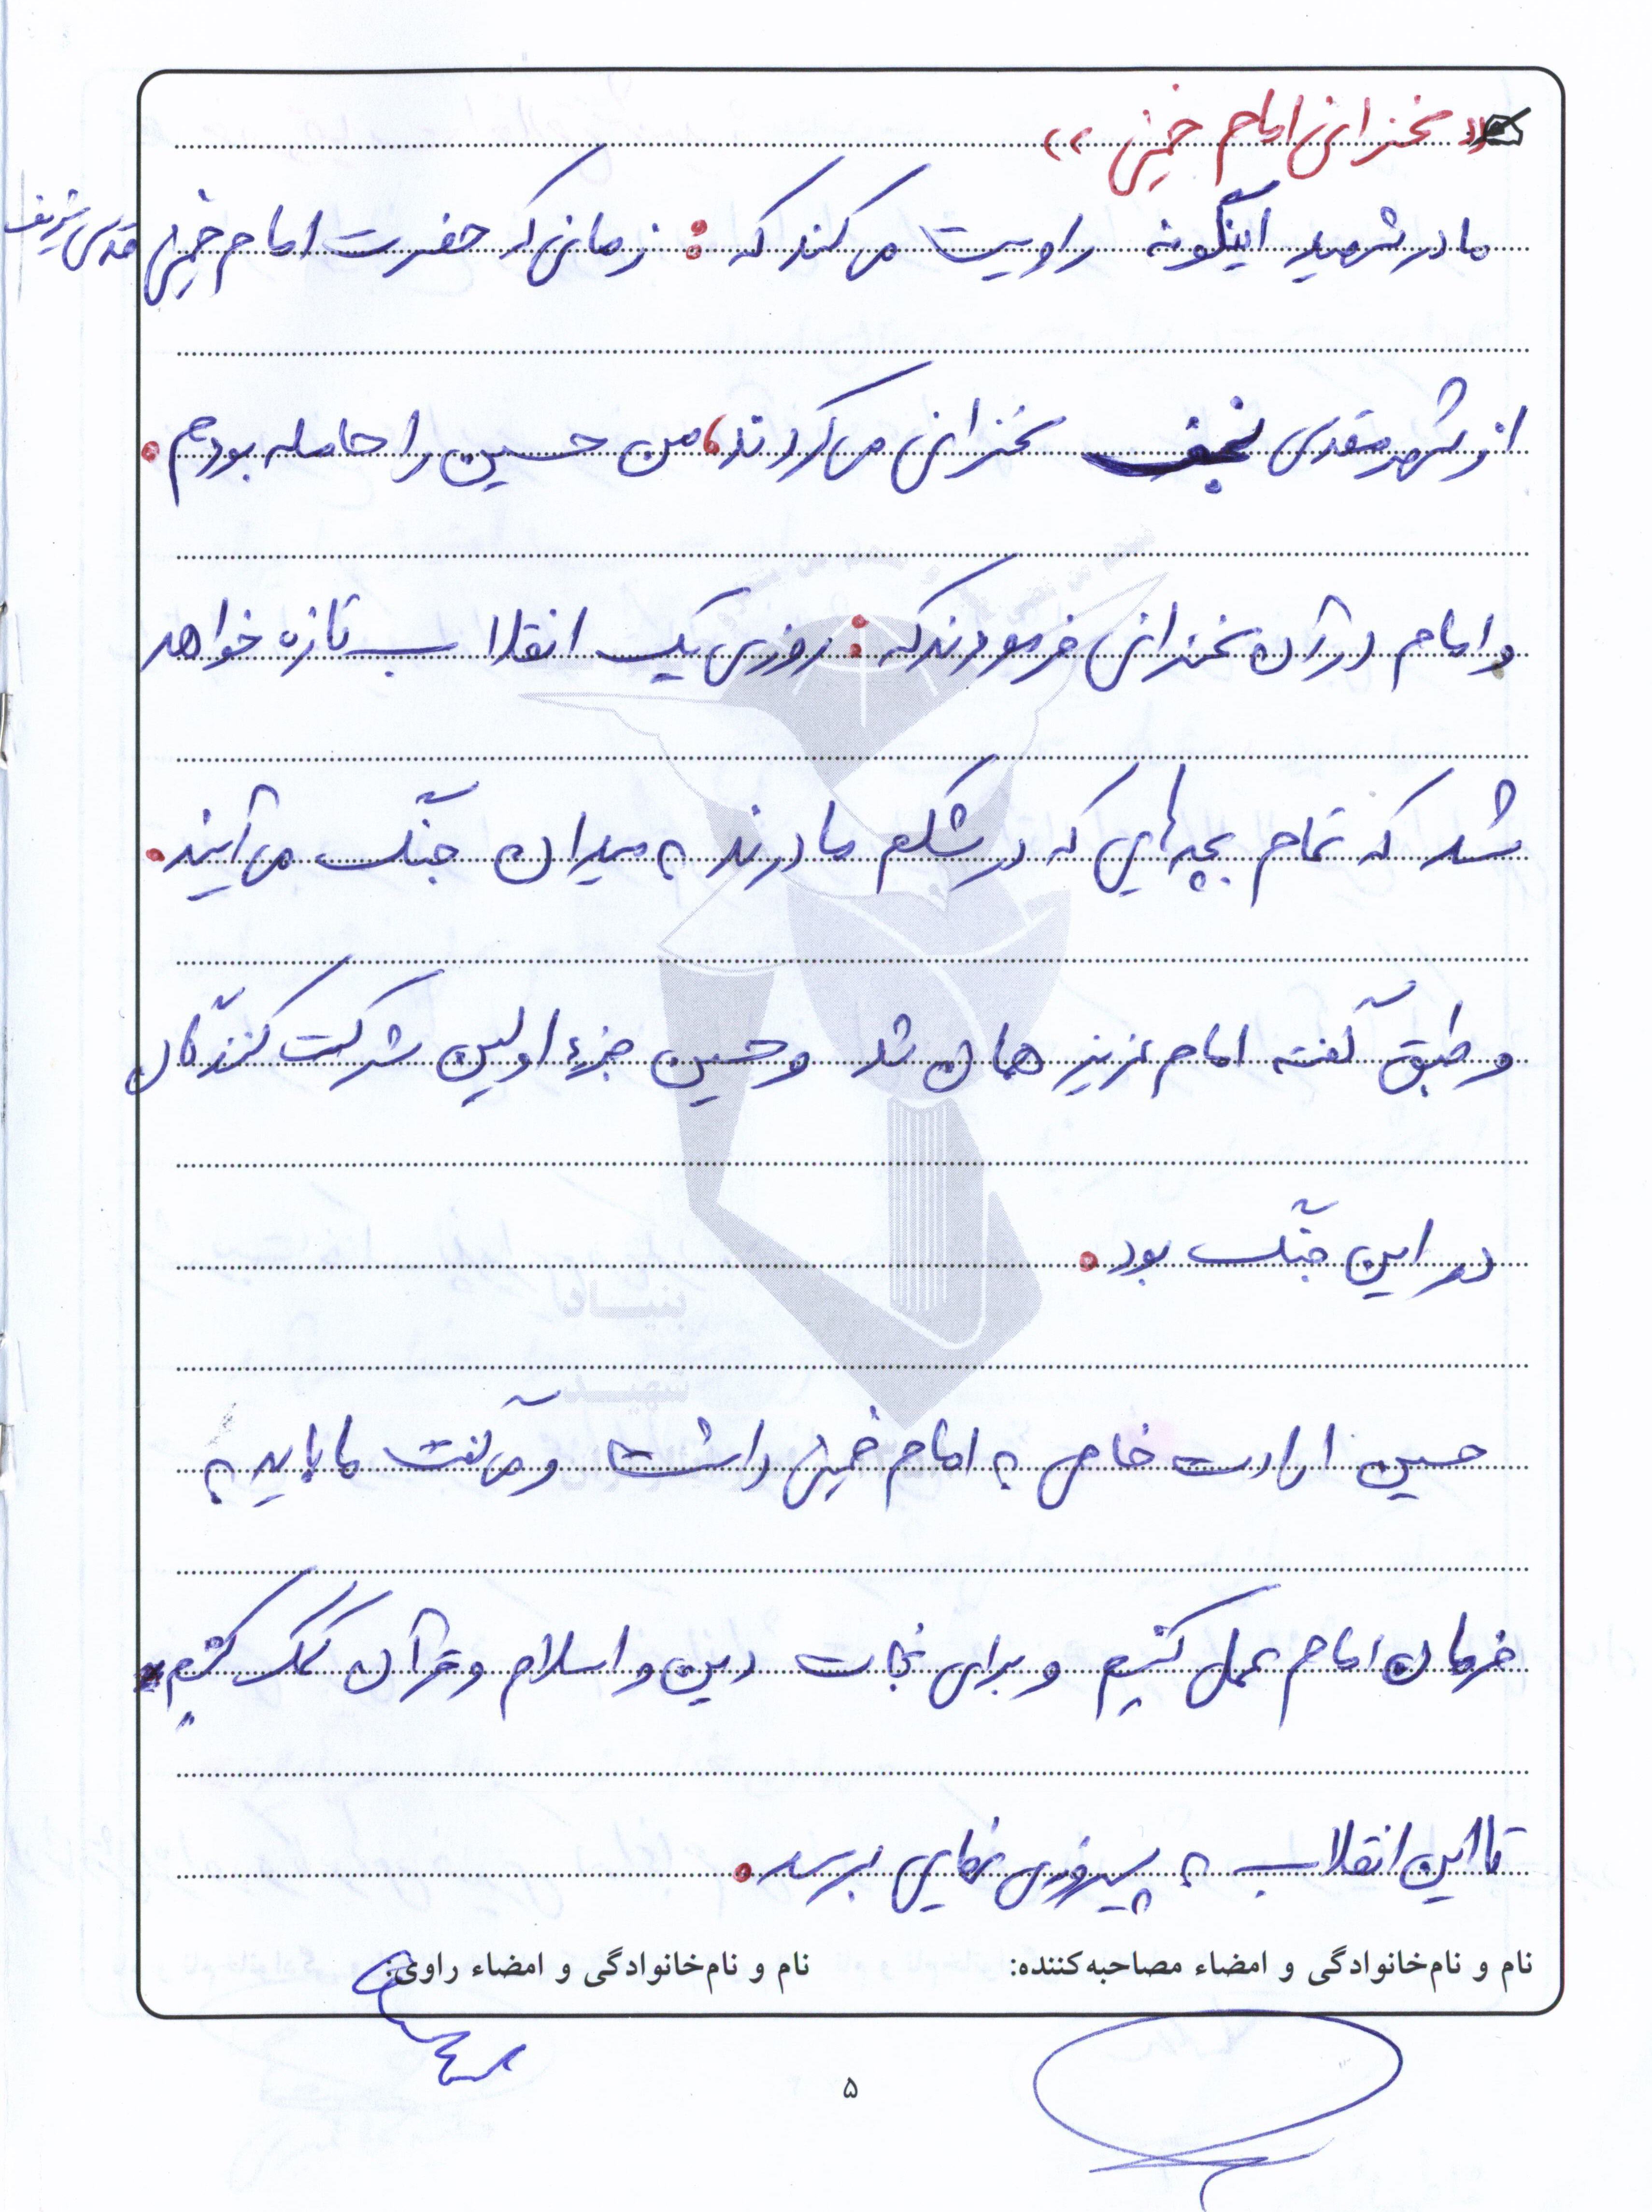 « سخنرانی امام خمینی »
مادر شهید اینگونه راویت می کند که : زمانی که حضرت امام خمینی قدس شریف
از شهر مقدس نجف سخنرانی می کردند، من حسین را حامله بودم.
و امام در آن سخنرانی فرمودند که : روزی یک انقلاب تازه خواهد
شد که تمام بچه هایی که در شکم مادرند به میدان جنگ می آیند.
و طبق گفته امام عزیز همان شد و حسین جزء اولین شرکت کنندگان
در این جنگ بود.
حسین ارادت خاصی به امام خمینی داشت و می گفت ما باید به
فرمان امام عمل کنیم و برای نجات دین و اسلام و قرآن کمک کنیم
تا این انقلاب به پیروزی نهایی برسد.
نام و نام‌خانوادگی و امضاء مصاحبه‌کننده: نام و نام‌خانوادگی و امضاء راوی:
۵
بنیاد
شهید